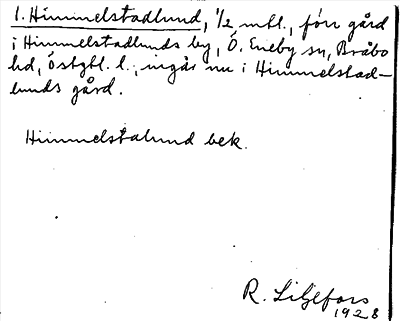 1. Himmelstadlund, 1/2 mtl., förr gård
i Himmelstadlunds by, Ö. Eneby sn, Bråbo
hd, Östgtl. l., ingår nu i Himmelstad-
lunds gård.
Himmelstalund bek.
R. Liljefors
1928